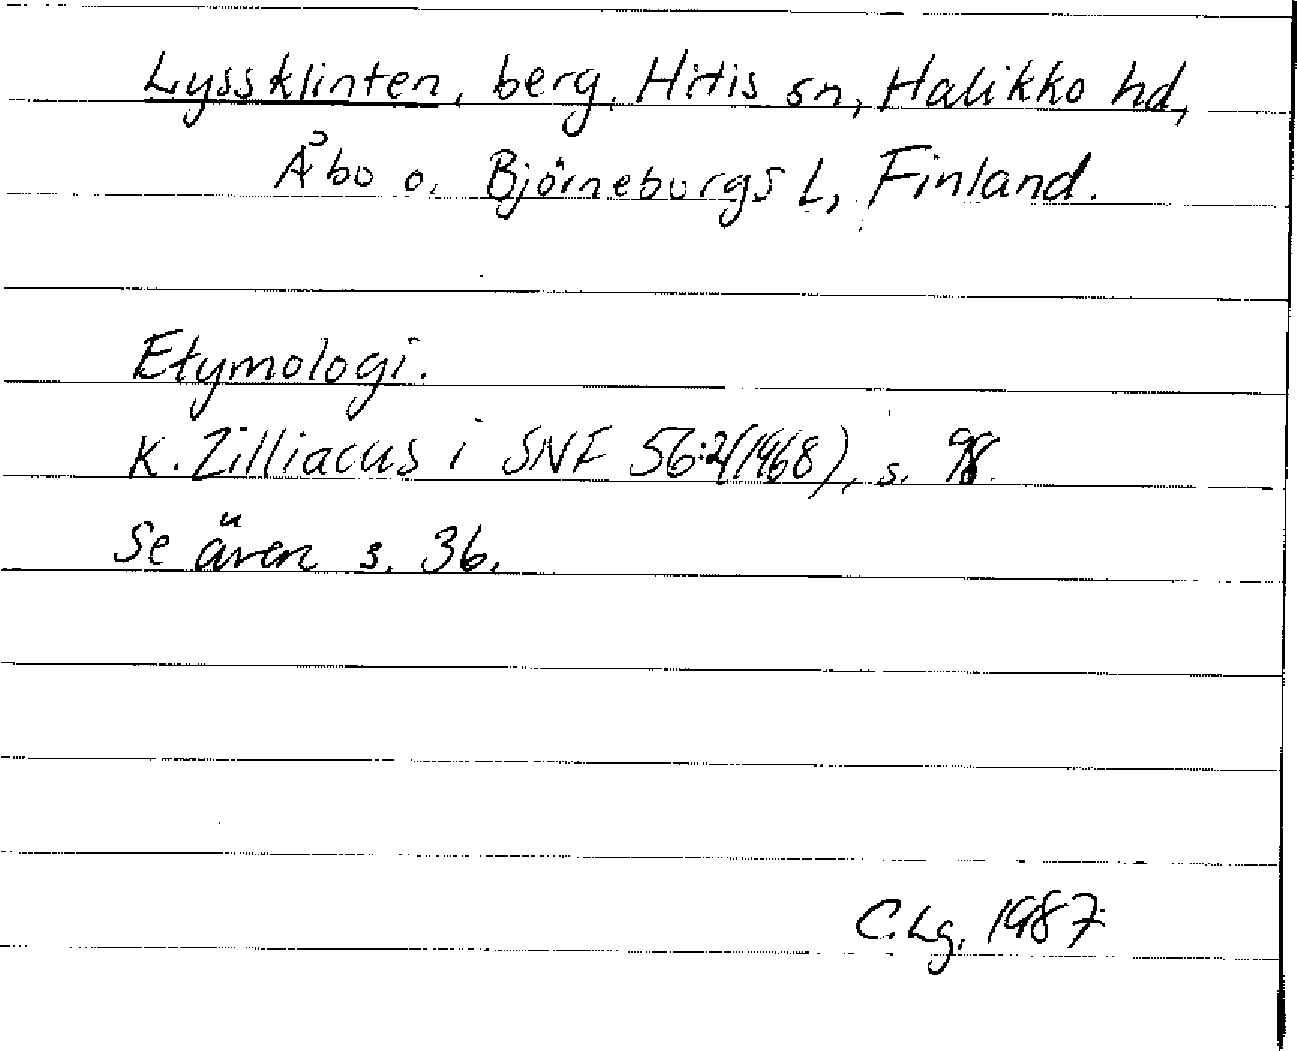 Lyssklinten, berg, Hitis sn, Halikko hd,
Åbo o. Björneborgs L, Finland.
Etymologi.
K. Zilliacus i SNF 56:2(1968), s. 98.
Se även s. 36.
C. Lg. 1987